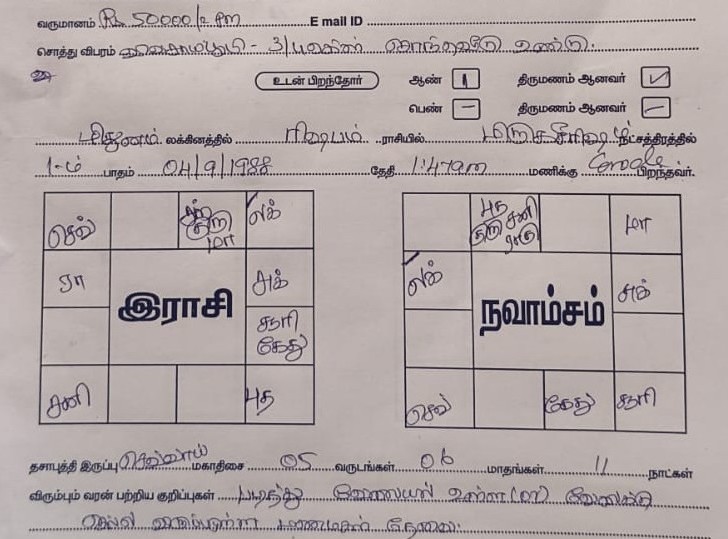 வருமானம் Rs 50000/- PM E mail ID
சொத்து விபரம் - 3/ சொந்தவீடு உண்டு.
உடன் பிறந்தோர் ஆண் 1 திருமணம் ஆனவர் ✓
பெண் – திருமணம் ஆனவர் –
மிதுனம் லக்கினத்தில் ரிஷபம் ராசியில் மிருகசீரிஷம் நட்சத்திரத்தில்
1-ம் பாதம் 04/9/1988 தேதி 1:47am மணிக்கு பிறந்தவர்.
செவ் குரு மா லக்
ரா இராசி சுக்
சூரி கேது
சனி புத
புத சனி குரு ராகு மா
லக் நவாம்சம் சுக்
செவ் கேது சூரி
தசாபுத்தி இருப்பு செவ்வாய் மகாதிசை 05 வருடங்கள் 06 மாதங்கள் 11 நாட்கள்
விரும்பும் வரன் பற்றிய குறிப்புகள் படித்து வேலையில் உள்ள (or) வேலைக்கு
செல்ல மணமகள் தேவை.